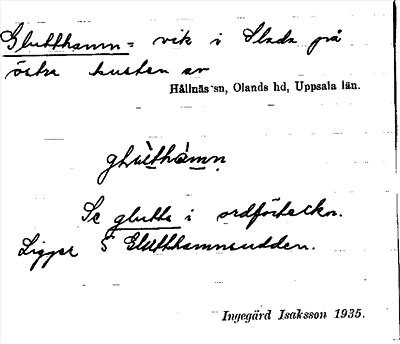 Glutthamn = vik i Slada på
östra kusten av
Hållnäs sn, Olands hd, Uppsala län.
glùthàmn
Se glutta i ordförteckn.
Ligger S Glutthamnsudden.
Ingegärd Isaksson 1935.